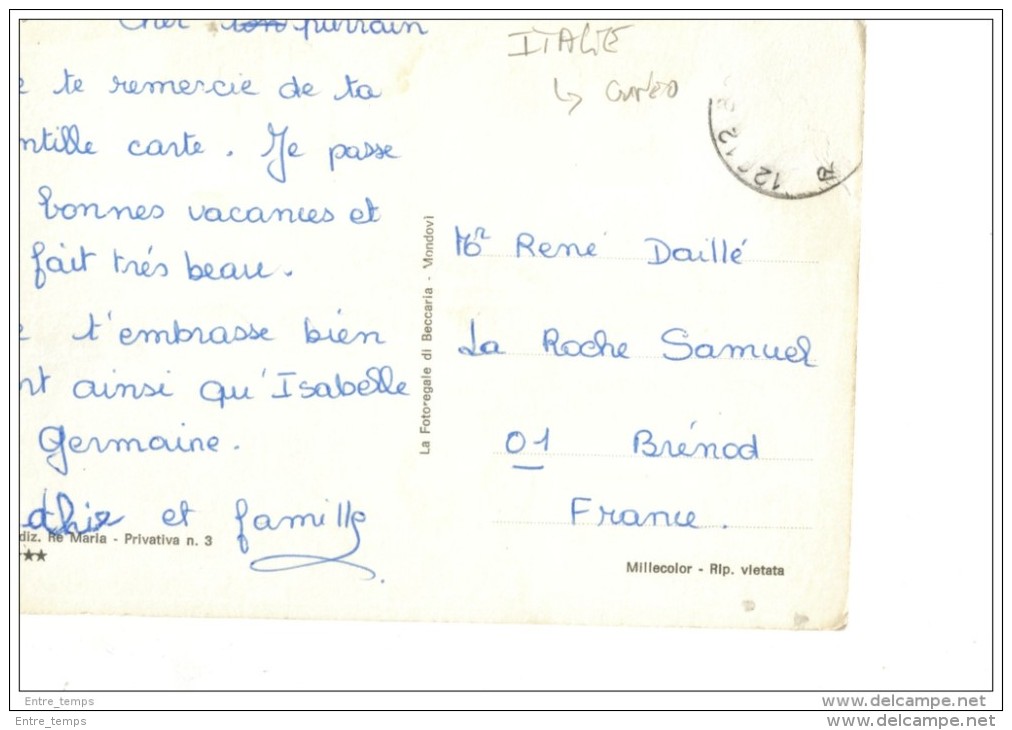 Cher parrain
te remercie de ta
ntille carte. Je passe
bonnes vacances et
fait trés beau.
t'embrasse bien
nt ainsi qu'Isabelle
Germaine.
et famille
diz. Re Maria - Privativa n. 3
★★
La Fotoregale di Beccaria - Mondovì
ITALIE
↳ Cunéo
12 12
Mr René Daillé
La Roche Samuel
01 Brénod
France.
Millecolor - Rip. vietata
Entre_temps
www.delcampe.net
Entre_temps
www.delcampe.net